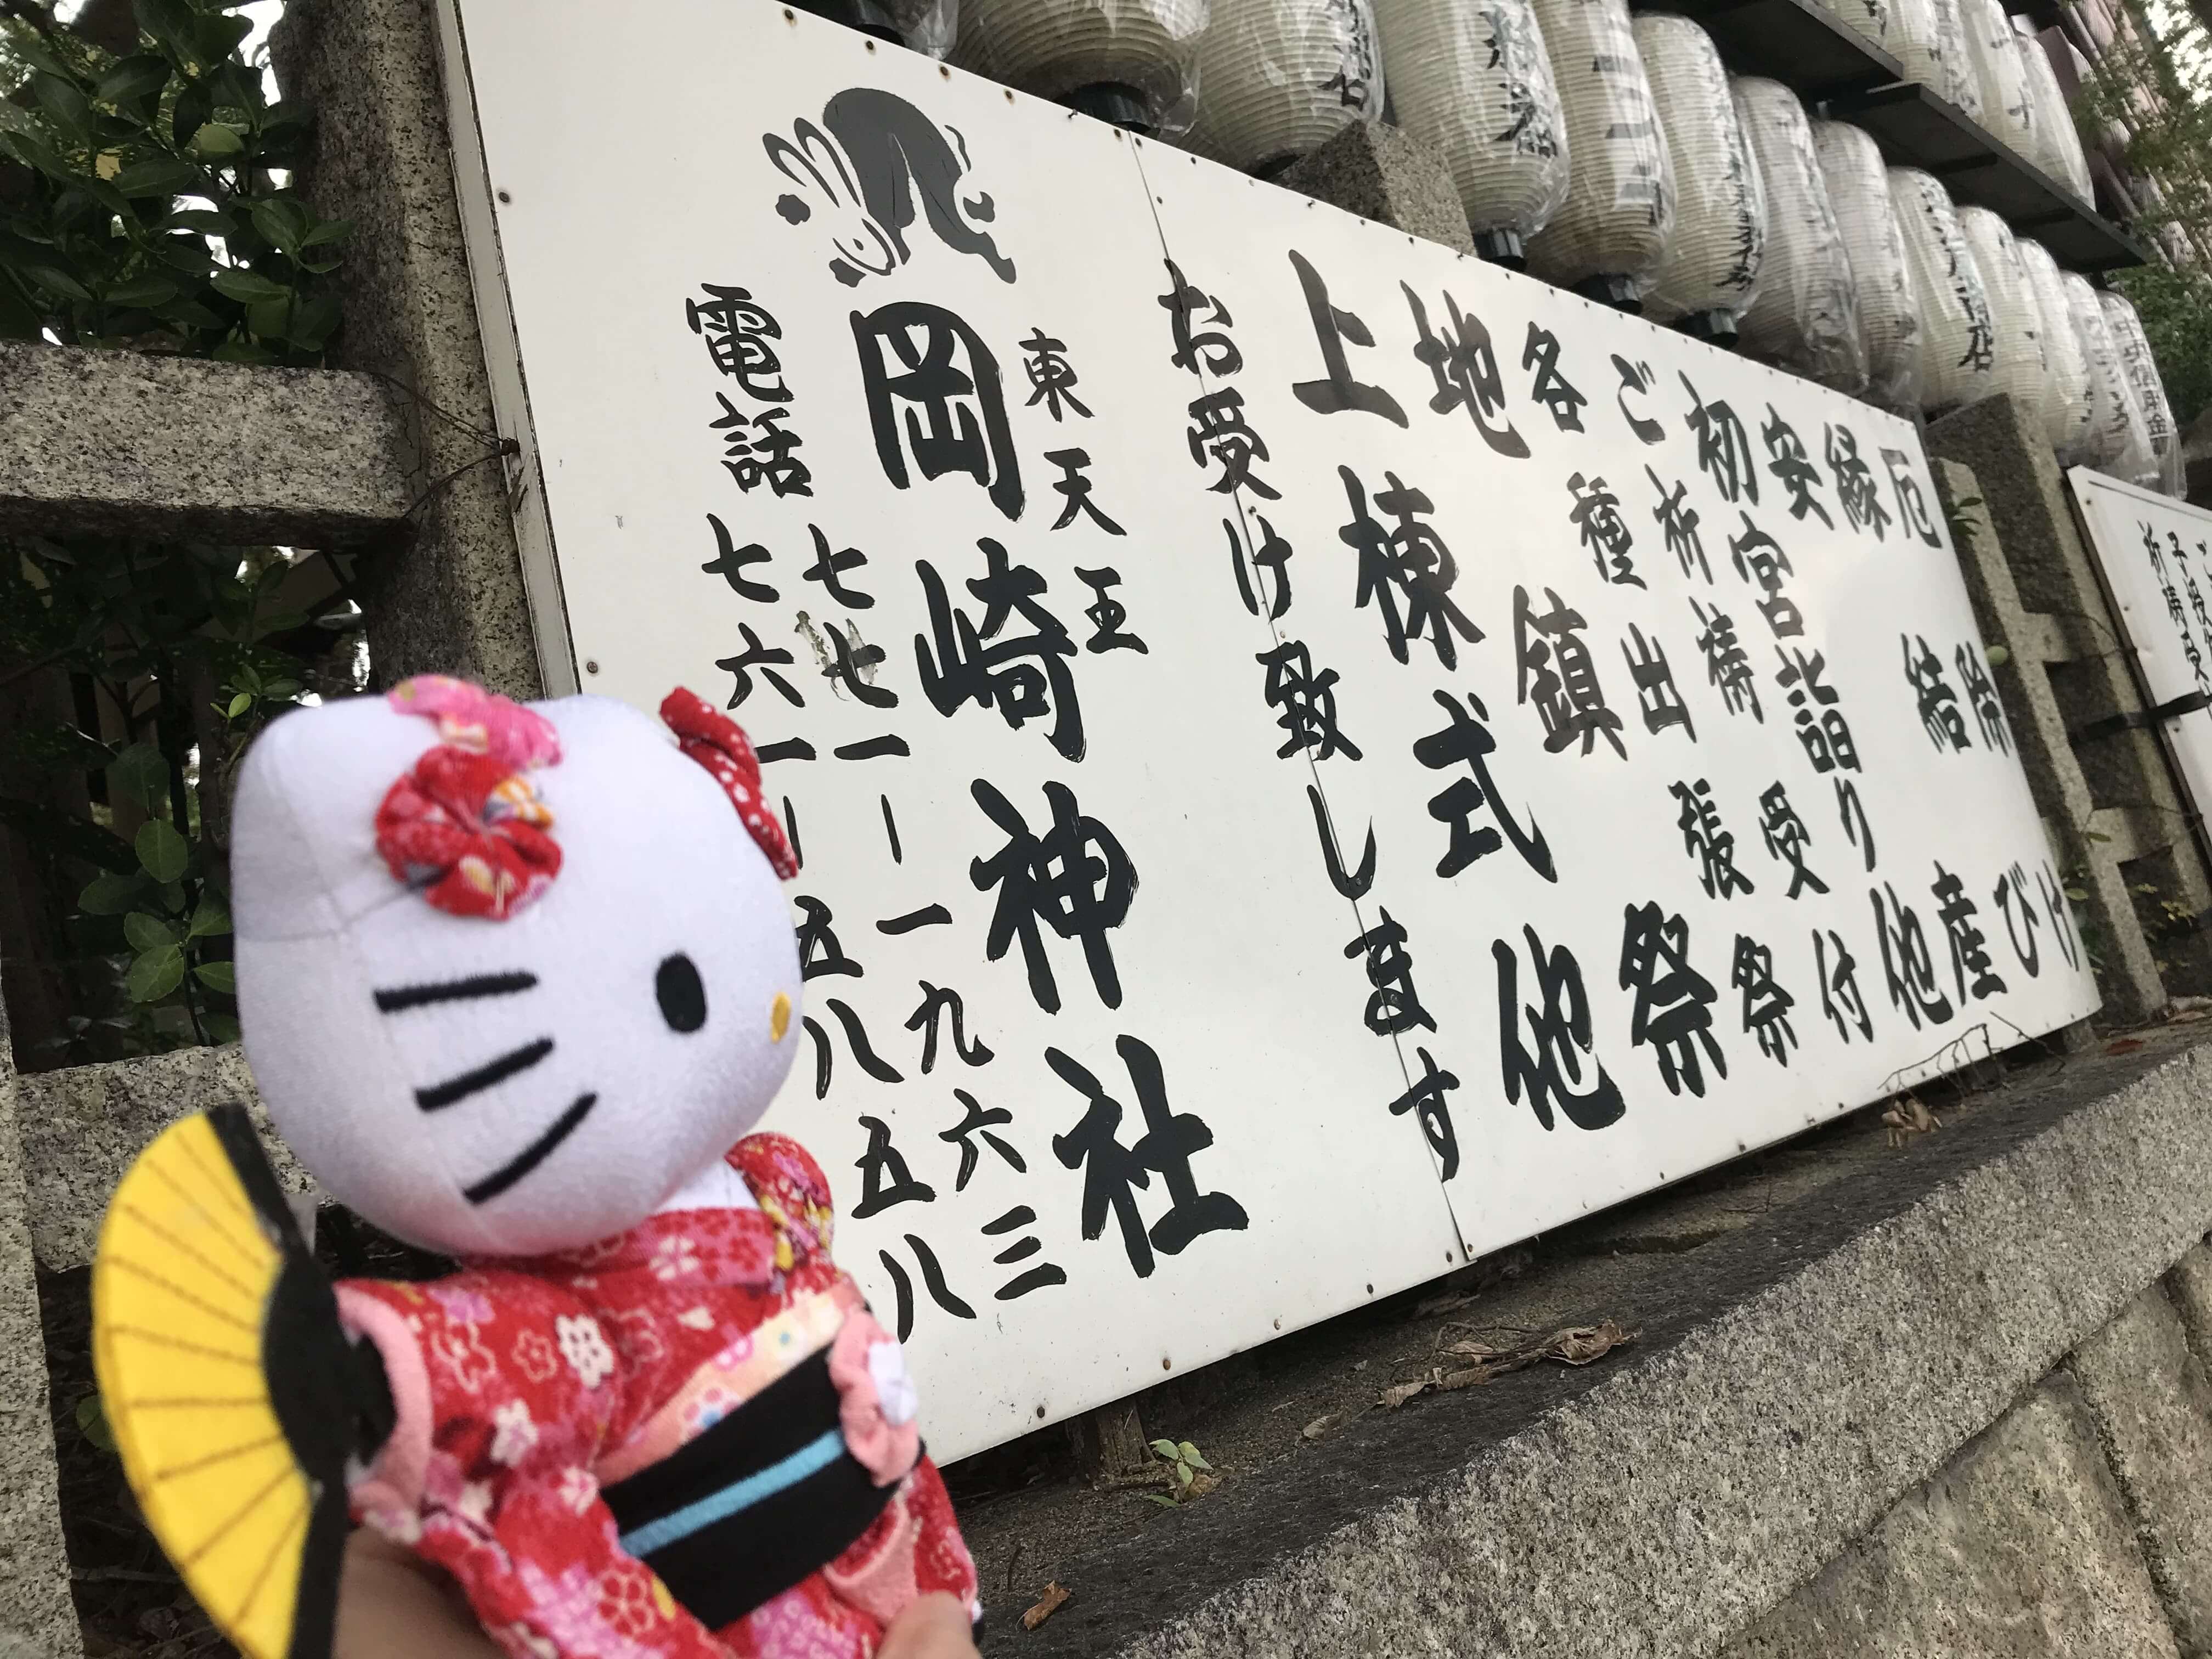 厄除け
縁結び
安産
初宮詣り他
ご祈祷受付
各種出張祭
地鎮祭
上棟式他
お受け致します
東天王
岡崎神社
電話
七七一―一九六三
七六一―五八五八